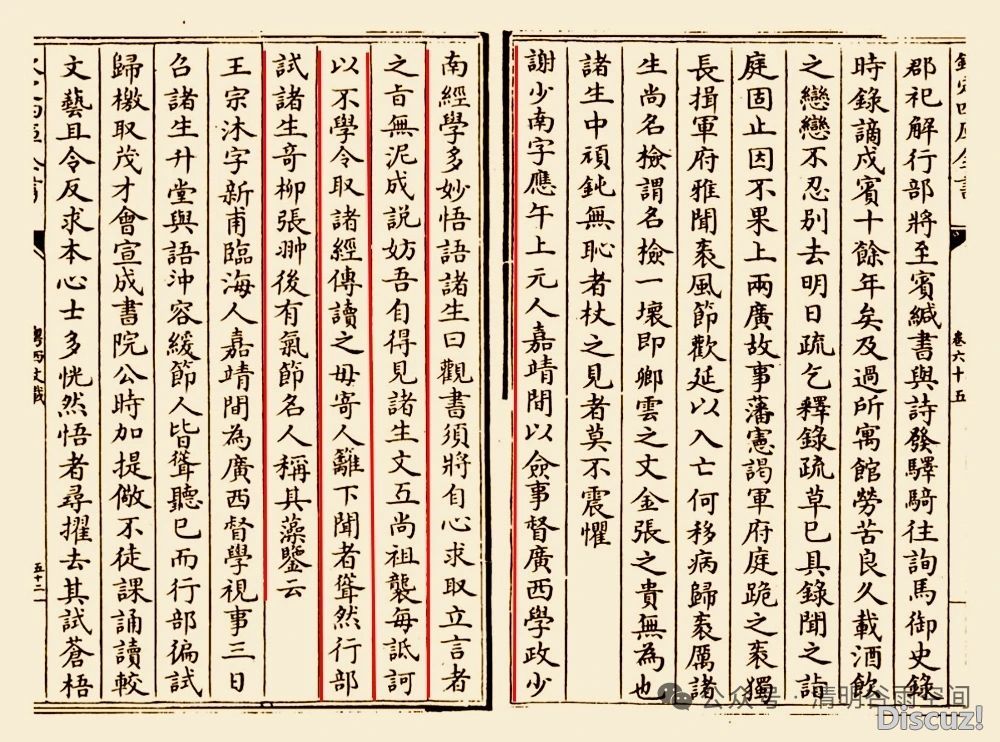 郡祀解行部將至賓緘書與詩發驛騎往詢馬御史錄
時錄謫戍賓十餘年矣及過所寓館勞苦良久載酒飲
之戀戀不忍別去明日疏乞釋錄疏草已具錄聞之詣
庭固止因不果上兩廣故事藩憲謁軍府庭跪之袤獨
長揖軍府雅聞袤風節歡延以入亡何移病歸袤厲諸
生尚名檢謂名檢一壞即卿雲之文金張之貴無為也
諸生中頑鈍無恥者杖之見者莫不震懼
謝少南字應午上元人嘉靖間以僉事督廣西學政少
卷六十五
南經學多妙悟語諸生曰觀書須將自心求取立言者
之旨無泥成說妨吾自得見諸生文互尚祖襲每詆訶
以不學令取諸經傳讀之毋寄人籬下聞者聳然行部
試諸生竒柳張翀後有氣節名人稱其藻鑒云
王宗沐字新甫臨海人嘉靖間為廣西督學視事三日
召諸生升堂與語沖容緩節人皆聳聽已而行部徧試
歸檄取茂才會宣成書院公時加提儆不徒課誦讀較
文藝且令反求本心士多恍然悟者尋擢去其試蒼梧
粵西文載
公众号 · 清明谷雨空间
Discuz!